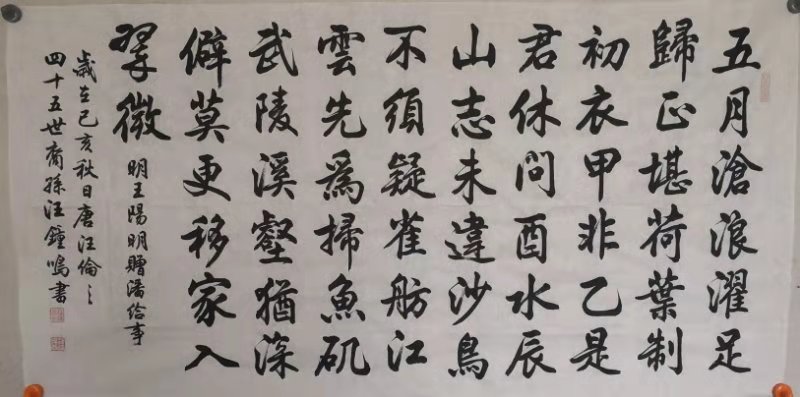 五月滄浪濯足
歸正堪荷葉制
初衣甲非乙是
君休問酉水辰
山志未違沙鳥
不須疑雀舫江
雲先為掃魚矶
武陵溪壑猶深
僻莫更移家入
翠微
明王陽明贈潘给事
歲在己亥秋日唐汪倫之
四十五世裔孫汪鐘鳴書